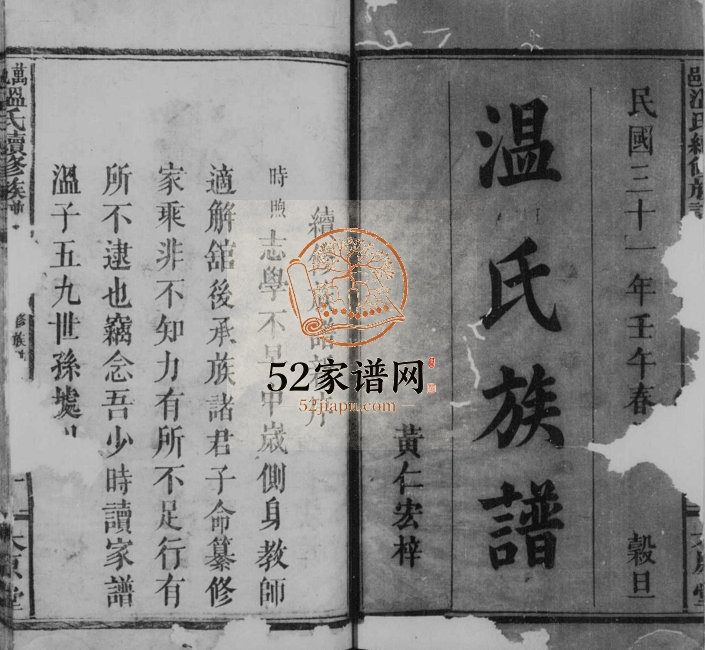 民國三十一年壬午春
穀旦
温氏族譜
黃仁宏梓
續修族譜
時煦志學不
甲歲側身教師
適解舘後承族諸君子命纂修
家乘非不知力有所不足行有
所不逮也竊念吾少時讀家譜
溫子五九世孫墟
萬
溫氏續修族
修族
太原堂
52家谱网
52jiapu.com